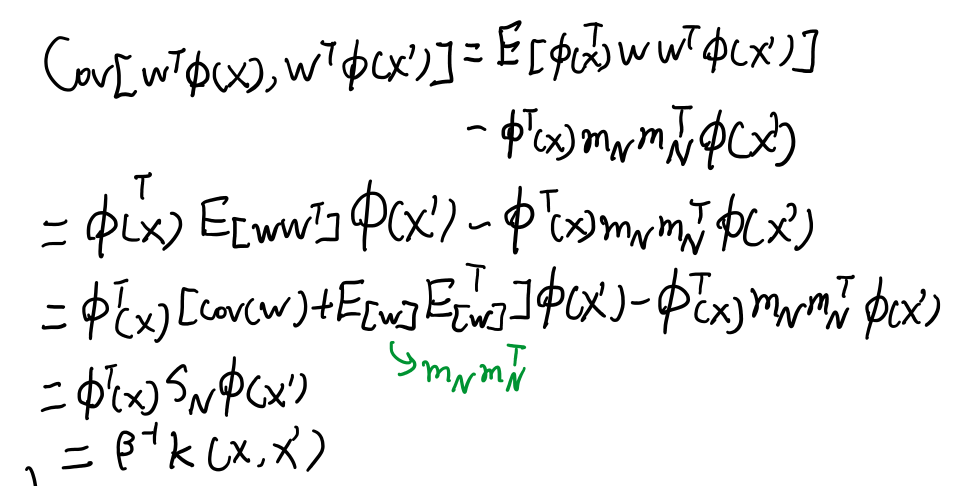 Cov[wᵀϕ(x), wᵀϕ(x')] = E[ϕᵀ(x)wwᵀϕ(x')]
- ϕᵀ(x)m_N m_Nᵀϕ(x')
= ϕᵀ(x) E[wwᵀ] ϕ(x') - ϕᵀ(x)m_N m_Nᵀϕ(x')
= ϕᵀ(x)[cov(w)+E[w]E[w]ᵀ]ϕ(x') - ϕᵀ(x)m_N m_Nᵀϕ(x')
↳m_N m_Nᵀ
= ϕᵀ(x)S_Nϕ(x')
= β⁻¹k(x,x')